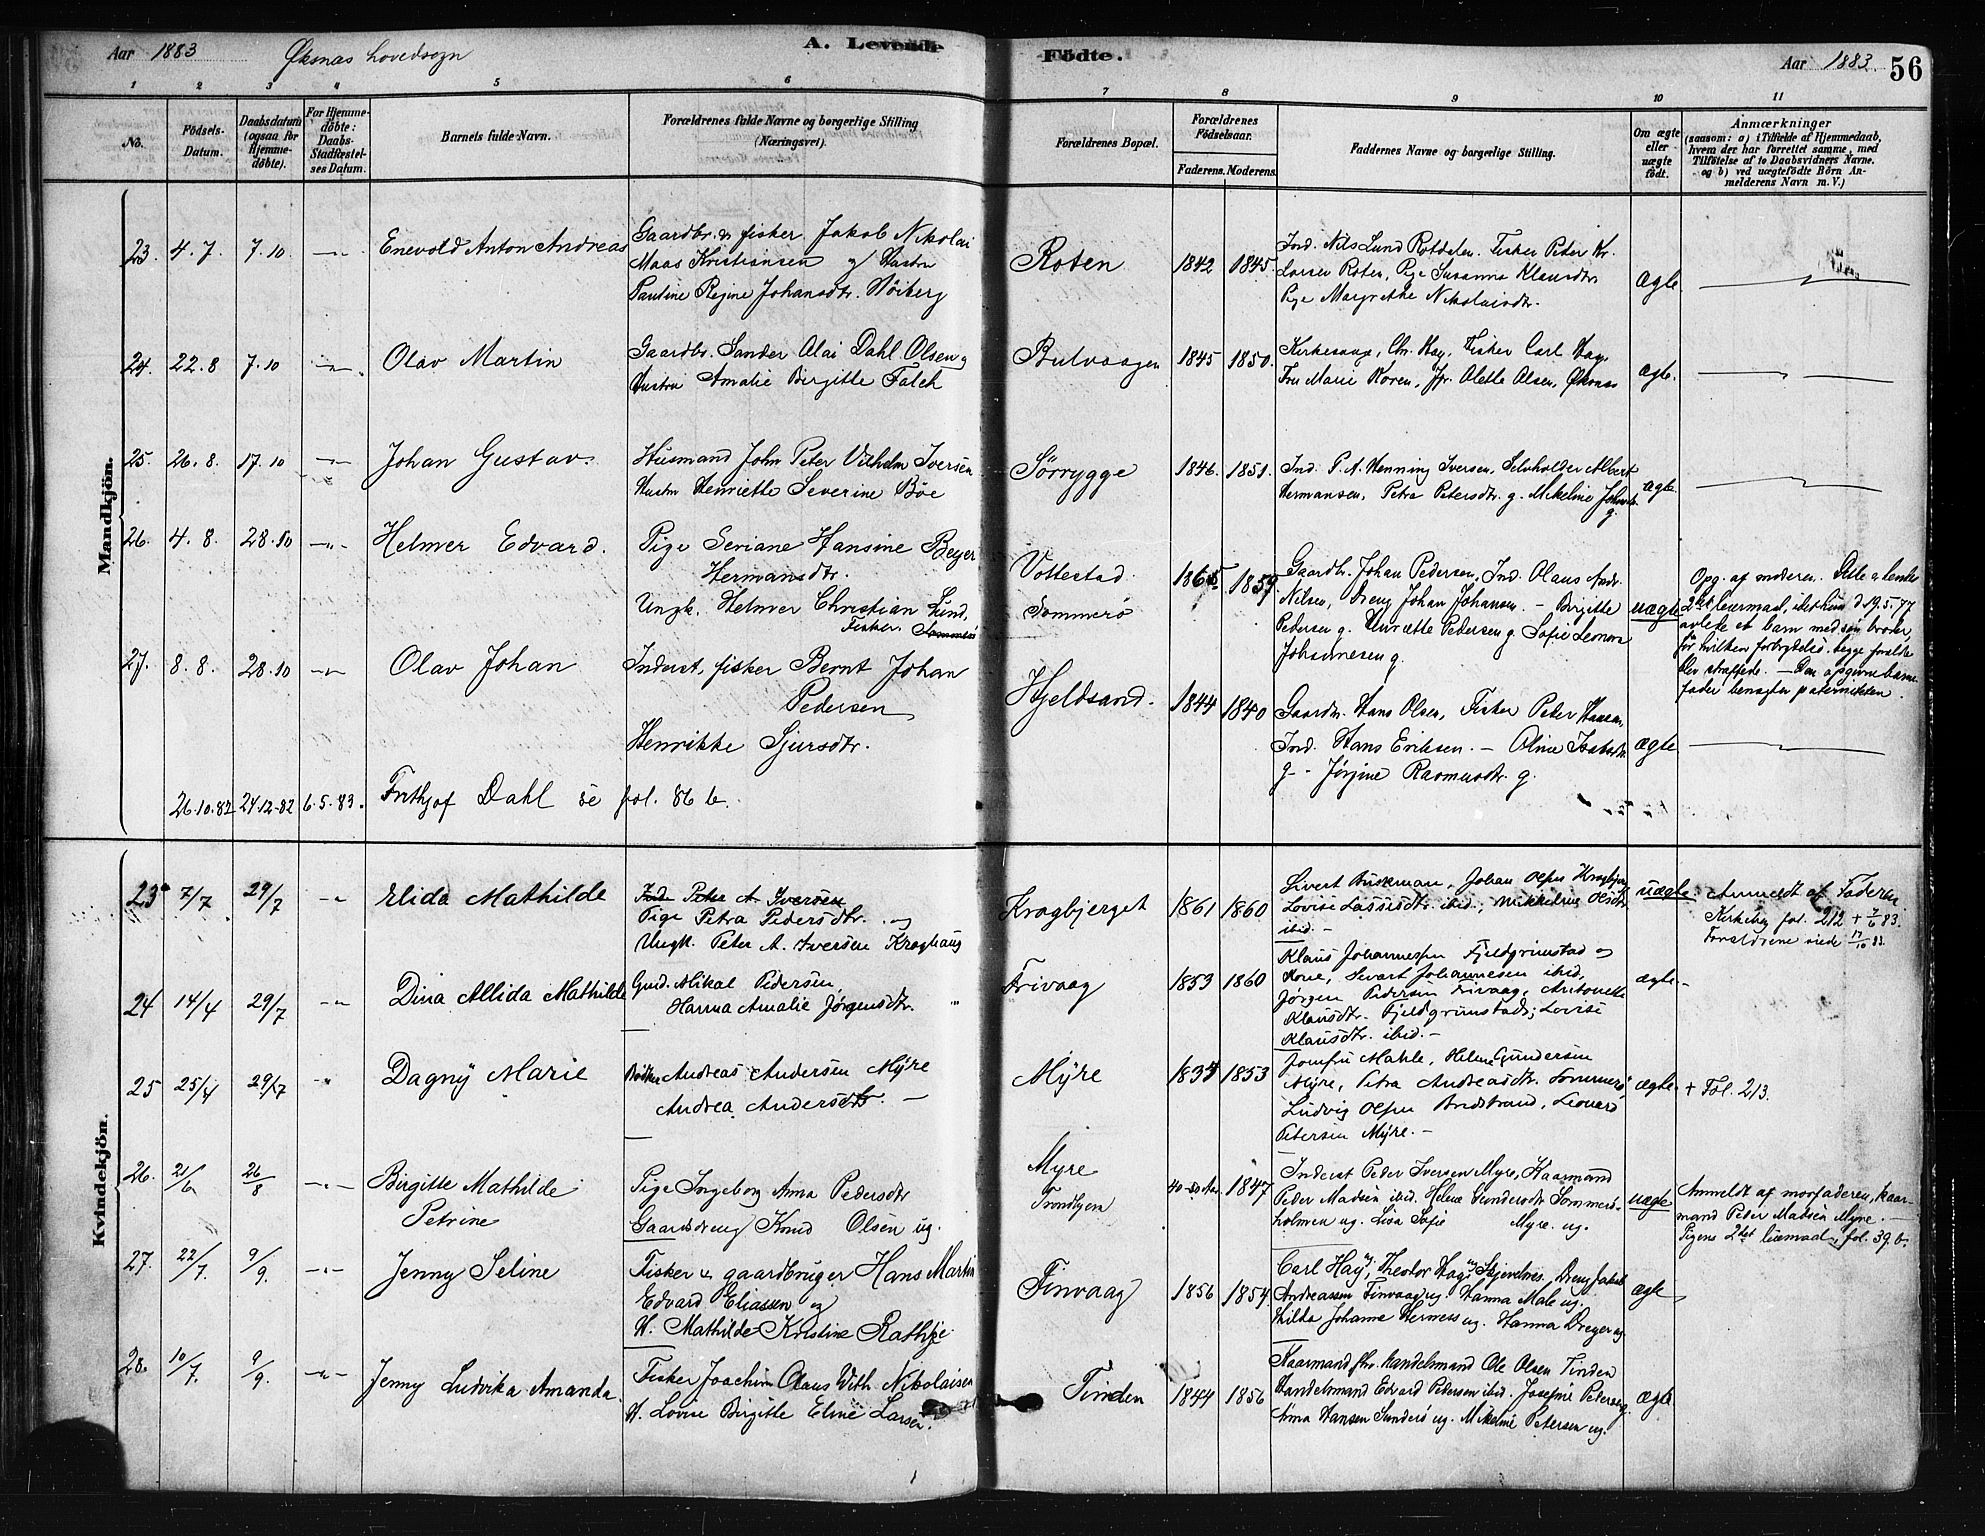 Aar 1883 Øksnes hovedsogn A. Levende Födte. Aar 1883. 56
1 2 3 4 5 6 7 8 9 10 11
No. Födsels-Datum. Daabsdatum (ogsaa for Hjemme-döbte). For Hjemme-döbte: Daabs-Stadfæstel-ses Datum. Barnets fulde Navn. Forældrenes fulde Navne og borgerlige Stilling (Næringsvei). Forældrenes Bopæl. Forældrenes Födselsaar. Faderens. Moderens. Faddernes Navne og borgerlige Stilling. Om ægte eller uægte födt. Anmærkninger (saasom: a) i Tilfælde af Hjemmedaab, hvem der har forrettet samme, med Tilföielse af to Daabsvidners Navne. og b) ved uægtefödte Börn An-melderens Navn m. V.)
Mandkjön.
23. 4.7. 7.10 —"— Enevold Anton Andreas Gaardbr. & fisker Jakob Nikolai
Maas Kristiansen og Hustru
Pauline Regine Johansdtr. Höiberg
Roten 1842 1845. Ind. Nils Lund Rotdalen. Fisker Peter Kr.
Larsen Roten, Pige Susanna Klausdtr
Pige Margrethe Nikolaisdtr.
ægte
24. 22.8 7.10 —"— Olav Martin Gaardbr. Sander Olai Dahl Olsen og
Hustru Amalie Birgitte Falch
Bulvaagen 1845 1850. Kirkesang. Chr. Hay, Fisker Carl Hay.
Fru Marie Koren, Jfr. Olette Olsen, Øksnes
ægte.
25. 26.8. 17.10 —"— Johan Gustav. Husmand John Peter Vilhelm Iversen
Hustru Henriette Severine Böe
Sörrygge 1846. 1851. Ind. P. A. Henning Iversen, Selvholder Albert
Hermansen, Petra Petersdtr. g. Mikeline
g.
ægte
26. 4.8. 28.10 —"— Helmer Edvard. Pige Seriane Hansine Beyer
Hermansdtr.
Ungk. Helmer Christian Lund,
Fisker. Sommerö
Vottestad
Sommerö
1865 1859. Gaardbr. Johan Pedersen, Ind. Olaus Andr.
Nilsen, Dreng Johan Johansen. — Birgitte
Pedersen g. Henriette Pedersen g. Sofie Leonora
Johannesen g.
uægte
Opg. af moderen. Dette er hendes
2det leiermaal, idet hun d 19.5.77
avlede et barn med sin broder,
for hvilken forbrydelse begge forældre
blev straffede. — Den opgivne barne-
fader benegter paterniteten.
27. 8.8. 28.10 —"— Olav Johan Inderst, fisker Bernt Johan
Pedersen
Henrikke Sjursdtr.
Hjeldsand. 1844 1840 Gaardbr. Hans Olsen, Fisker Peter Hansen,
Ind. Hans Eriksen. — Oline Isaksdtr
g. - Jörgine Rasmusdtr. g.
ægte
26.10.82 24.12.82 6.5.83. Frithjof Dahl se fol. 86 b.
Kvindekjön.
23 7/7 29/7 —" Elida Mathilde Ind. Peter A. Iversen
Pige Petra Pedersdtr. og
Ungk. Peter A. Iversen Kroghaug
Kragbjerget 1861 1860 Sivert Buskman, Johan Olsen Kragbjerg
Lovise Lassesdtr. ibid, Mikkeline Olsdtr
ibid. —
uægte. Anmeldt af Faderen
Kirkebog fol. 212 + 7/6 83.
Forældrene viede 17/10 83.
24 14/4 29/7 —"— Dina Allida Mathilde Gmd. Mikal Pedersen,
Hanna Amalie Jörgensdtr. "
Frivaag 1853 1860 Klaus Johannessen Fjeldgrimstad og
Kone, Sivart Johannesen ibid,
Jörgen Pedersen Frivaag, Antonette
Klausdtr. Fjeldgrimstad; Lovise
Klausdtr. ibid. —
ægte. -
25 25/4 29/7 —" Dagny Marie Andreas Andersen Myre
Andrea Andersdtr. —
Myre 1853 Jomfru Mahle, Helene Gundersen
Myre, Petra Andreasdtr. Sommerö,
Ludvig Olsen Bredstrand, Leonard
Petersen Myre. —
ægte. + Fol. 213.
26. 21/6 26/8 —"— Birgitte Mathilde
Petrine
Pige Ingeborg Anna Pedersdtr
Gaardsdreng Knud Olsen ug.
Myre
Trondhjem
40-50 Aar. 1847 Inderst Peder Iversen Myre, Kaarmand
Peder Madsen ibid. Helene Gundersdtr Sommerö-
holmen ug. Lisa Sofie Myre. ug.
uægte
Anmeldt af morfaderen, kaar-
mand Peder Madsen Myre. —
Pigens 2det leiermaal, fol. 39 b.
27. 22/7. 9/9. —"— Jenny Seline Fisker & gaardbruger Hans Martin
Edvard Eliassen og
H. Mathilde Kristine Rathje
Finvaag 1856 1854 Carl Hay ug, Theodor Hay ug Skjendnes, Dreng Jakob
Andreassen Finvaag ug. Hanna Male ug.
Hilda Johanne Hermess ug. Hanna Dreyer ug
ægte
28. 10/7. 9/9. —"— Jenny Ludvika Amanda. Fisker Joachim Olaus With Nikolaisen
H. Lovise Birgitte Eline Larsen.
Tinden 1844 1856 Kaarmand, fhv. handelsmand Ole Olsen Tinden
Handelsmand Edvard Pedersen ibid. Josefine Pedersen g.
Anna Hansen Sunderö ug. Mikeline Petersen ug.
ægte